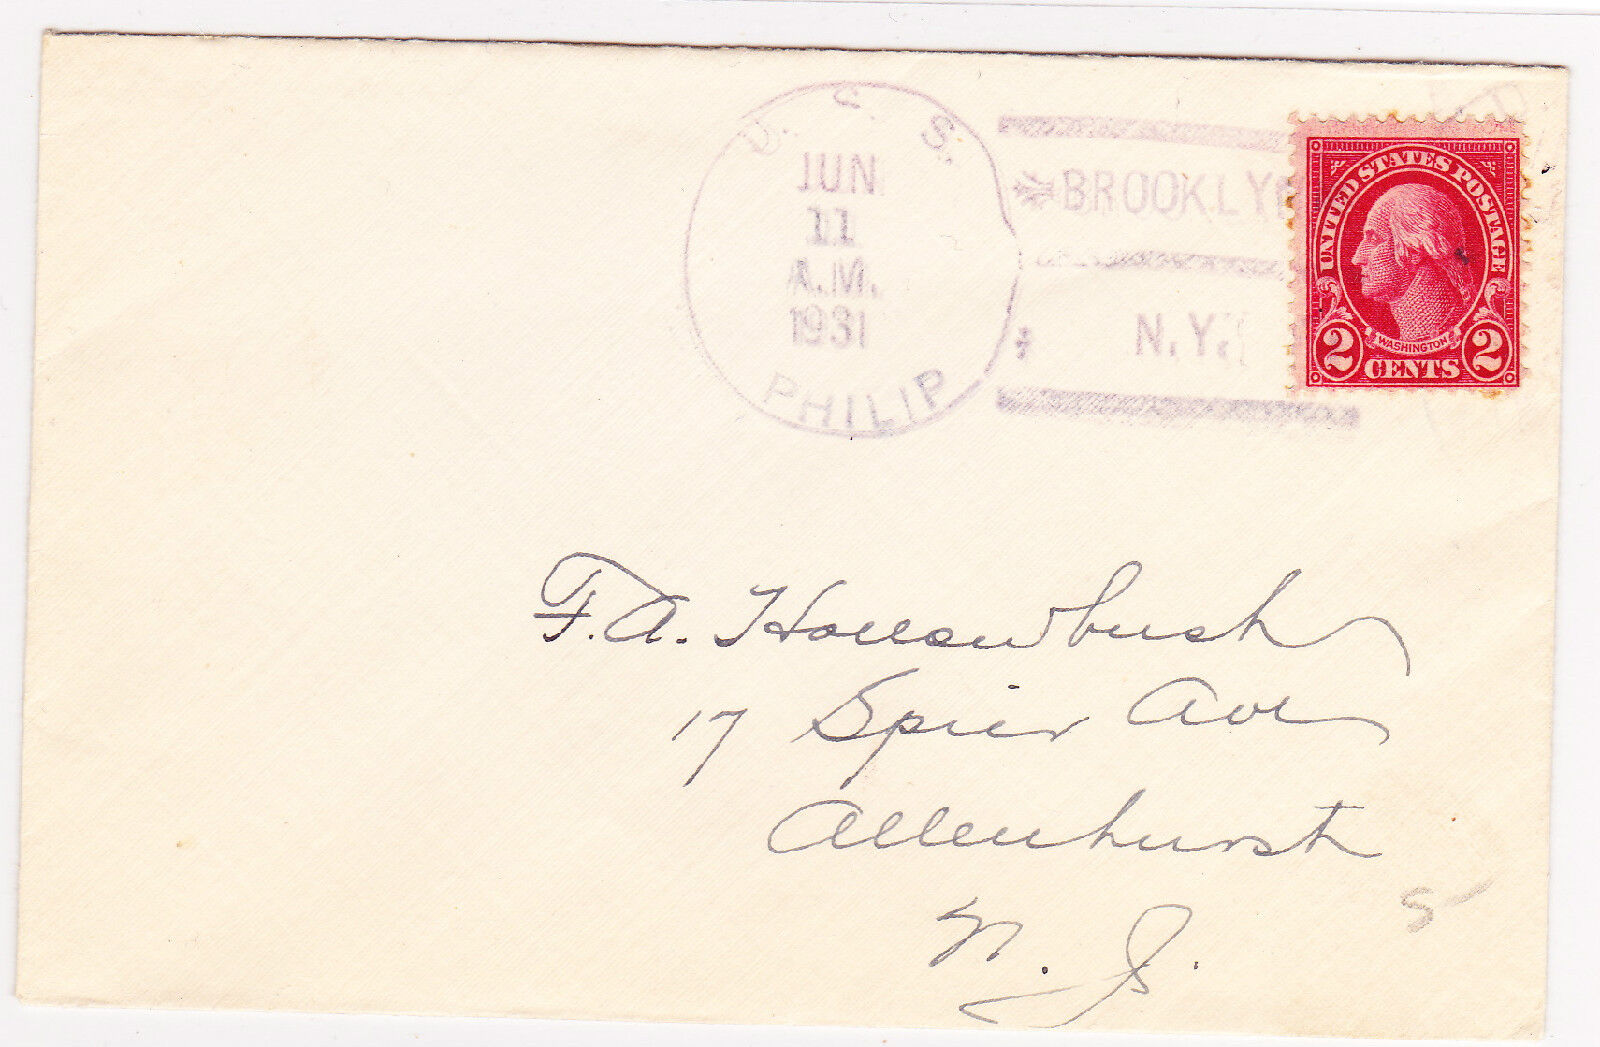 U. S. S.
JUN
11
A.M.
1931
PHILIP
BROOKLYN
N.Y.
UNITED STATES POSTAGE
WASHINGTON
2 CENTS 2
F. A. Hollowbush
17 Spier Ave
Allenhurst
N. J.
5